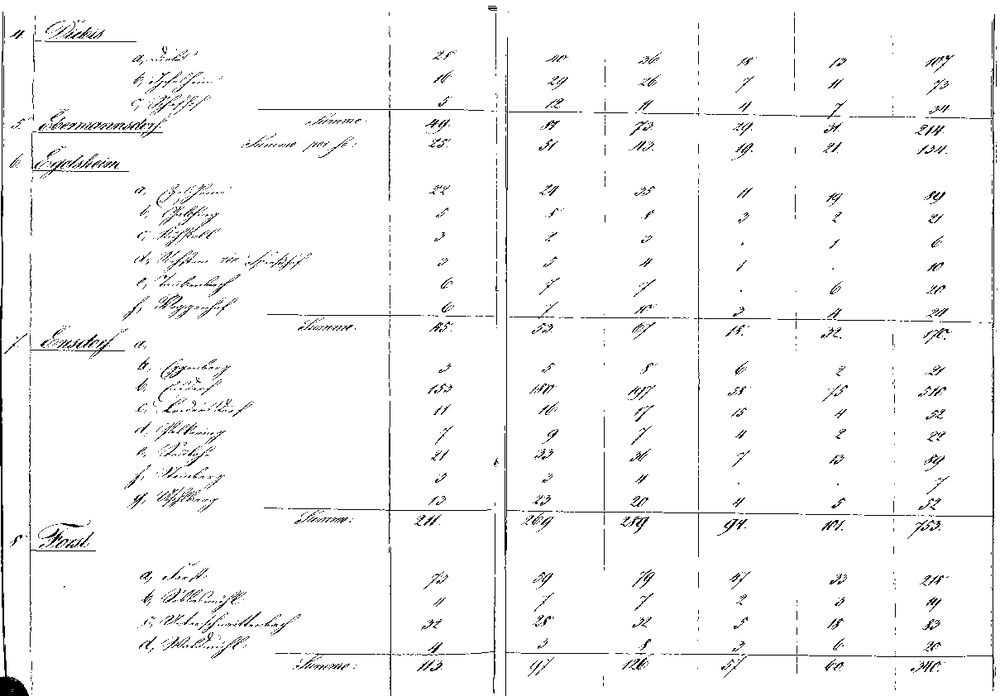 4. Diebis
a, 28 40 36 18 13 107
b, 16 29 26 7 11 73
c, 5 12 11 4 7 34
Summe. 49. 81 73. 29. 31. 214.
5. Ebermannsdorf.
Summe per se: 25. 51 43. 19. 21. 134.
6. Egelsheim
a, 22 24 35 11 19 89
b, 5 8 8 3 2 21
c, 3 2 3 . 1 6
d, 3 5 4 1 . 10
e, Taubenbach 6 7 7 . 6 20
f, 6 7 10 3 4 24
Summe. 45. 53 67 18. 32. 170.
7. Ensdorf. a.
a. Eggenberg 3 5 8 6 2 21
b. Ensdorf 153 180 197 58 75 510
c. 11 16 17 15 4 52
d. 7 9 7 4 2 22
e, 21 33 36 7 13 89
f, Steinberg 3 3 4 . . 7
g, 13 23 20 4 5 52
Summe: 211. 269 289 94. 101. 753.
8 Forst.
a, Forst. 73 59 79 47 33 218
b, 4 7 7 2 3 19
c, Unterschnaittenbach 32 28 32 5 18 83
d, Waldmühl. 4 3 8 3 6 20
Summe: 113. 97 126 57. 60. 340.